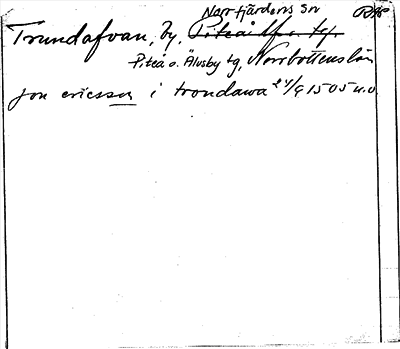 Norrfjärdens sn
Trundafvan, by, Piteå lfs. tg.
Piteå o. Älvsby tg, Norrbottens län
jon ericsson i trondawa 24/9 1505 u.o